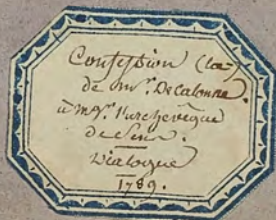 Confession (la)
de Mr. De Calonne.
à Mgr. l'archevêque
de Sens.
Dialogue
1789.